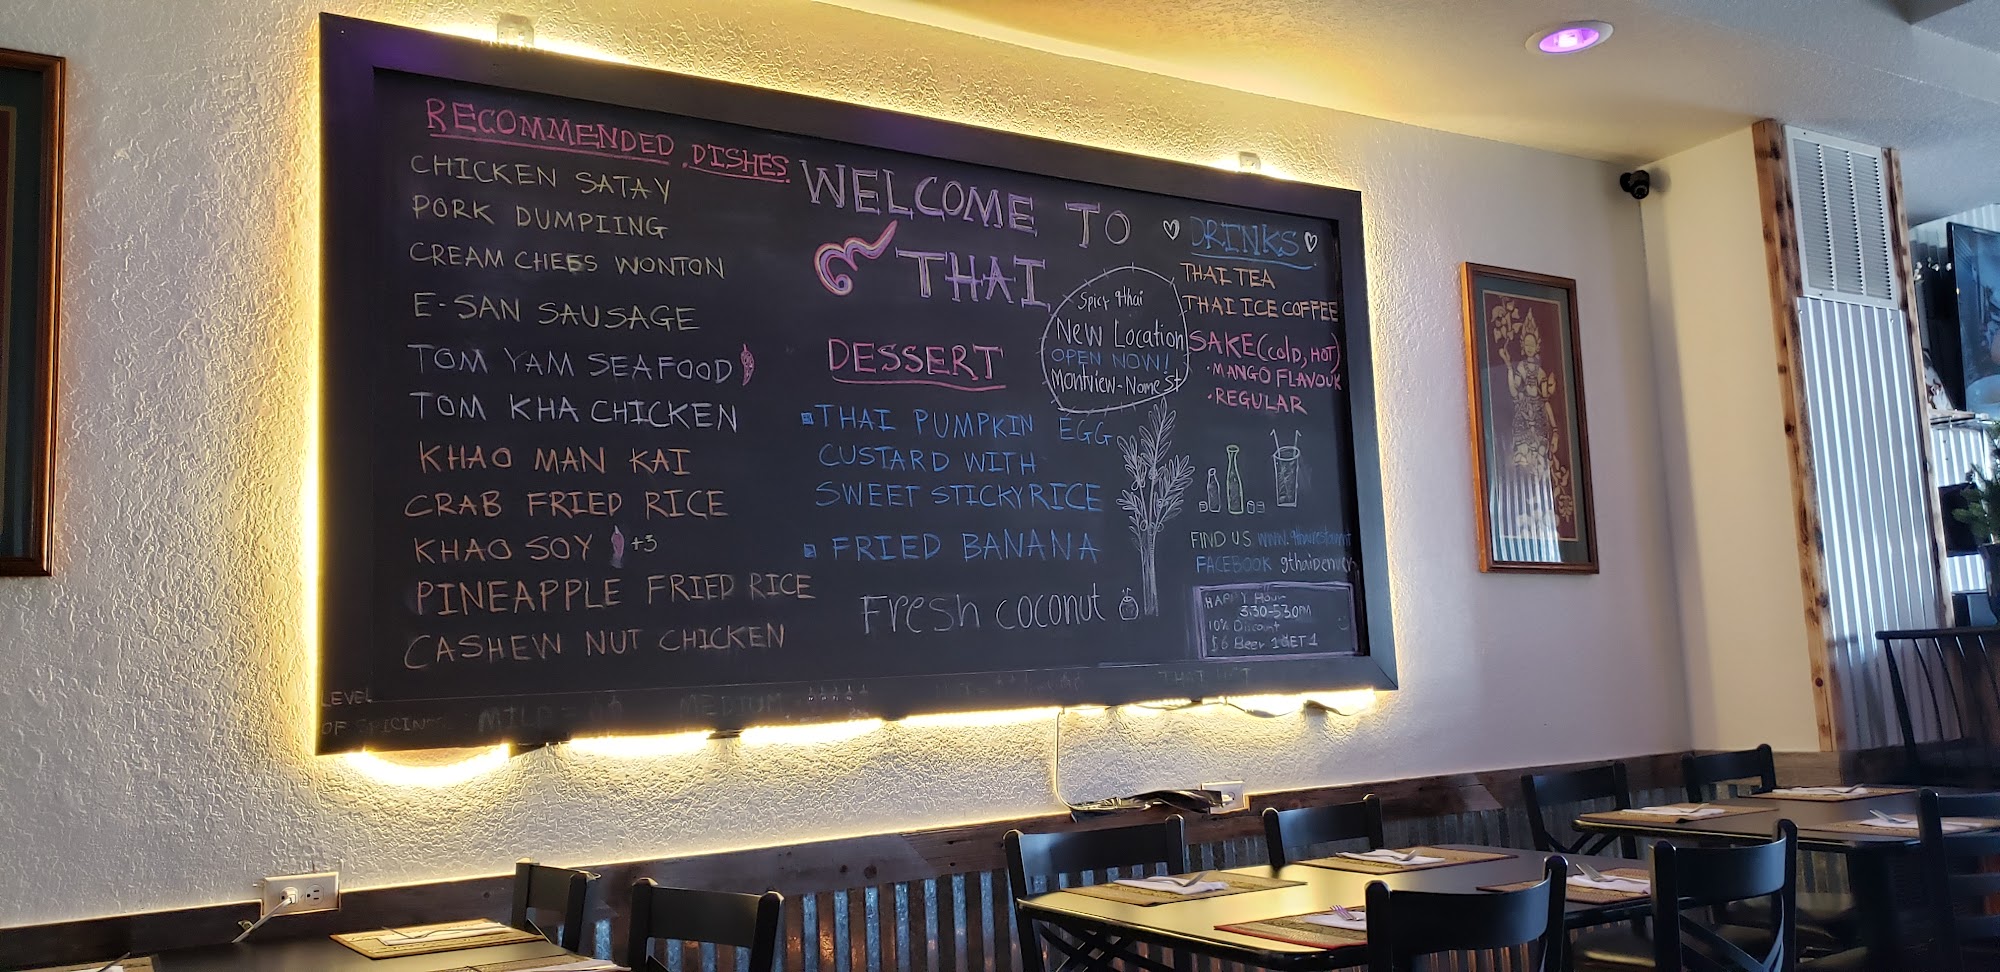 RECOMMENDED DISHES
CHICKEN SATAY
PORK DUMPIING
CREAM CHEES WONTON
E-SAN SAUSAGE
TOM YAM SEAFOOD
TOM KHA CHICKEN
KHAO MAN KAI
CRAB FRIED RICE
KHAO SOY +3
PINEAPPLE FRIED RICE
CASHEW NUT CHICKEN
WELCOME TO
๙ THAI
DESSERT
THAI PUMPKIN EGG
CUSTARD WITH
SWEET STICKY RICE
FRIED BANANA
Fresh coconut
Spicy 9thai
New Location
OPEN NOW!
Montview-Nome St
DRINKS
THAI TEA
THAI ICE COFFEE
SAKE (COLD, HOT)
·MANGO FLAVOUR
·REGULAR
FIND US
FACEBOOK 9thaidenver
HAPPY HOUR
3:30-5:30PM
10% Discount
$6 Beer 1 GET 1
LEVEL
OF
MILD
MEDIUM
THAI HOT